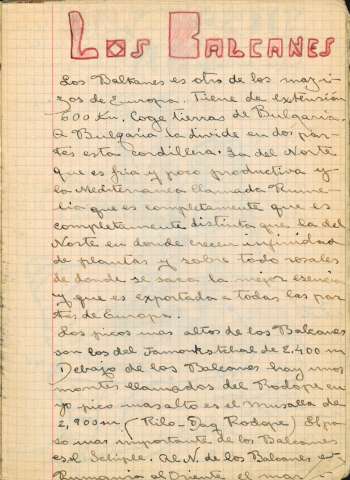 Los Balcanes
Los Balkanes es otro de los mazi-
zos de Europa. Tiene de extensión
600 Km. Coge tierras de Bulgaria
A Bulgaria la divide en dos par-
tes esta cordillera. La del Norte
que es fria y poco productiva y
la Mediterranea llamada Rume-
lia que es completamente que es
completamente distinta que la del
Norte en donde crecen infinidad
de plantas y sobre todo rosales
de donde se saca la mejor esencia
y que es exportada a todas las par-
tes de Europa.
Los picos mas altos de los Balcanes
son los del de 2,400 m
Debajo de los Balcanes hay unos
montes llamados del Rodope cu
yo pico mas alto es el Musalla de
2,900 m. (Rilo-Dag Rodope) El pa
so mas importante de los Balcanes
es el Schipke. Al N. de los Balcanes
Rumania al Oriente el mar